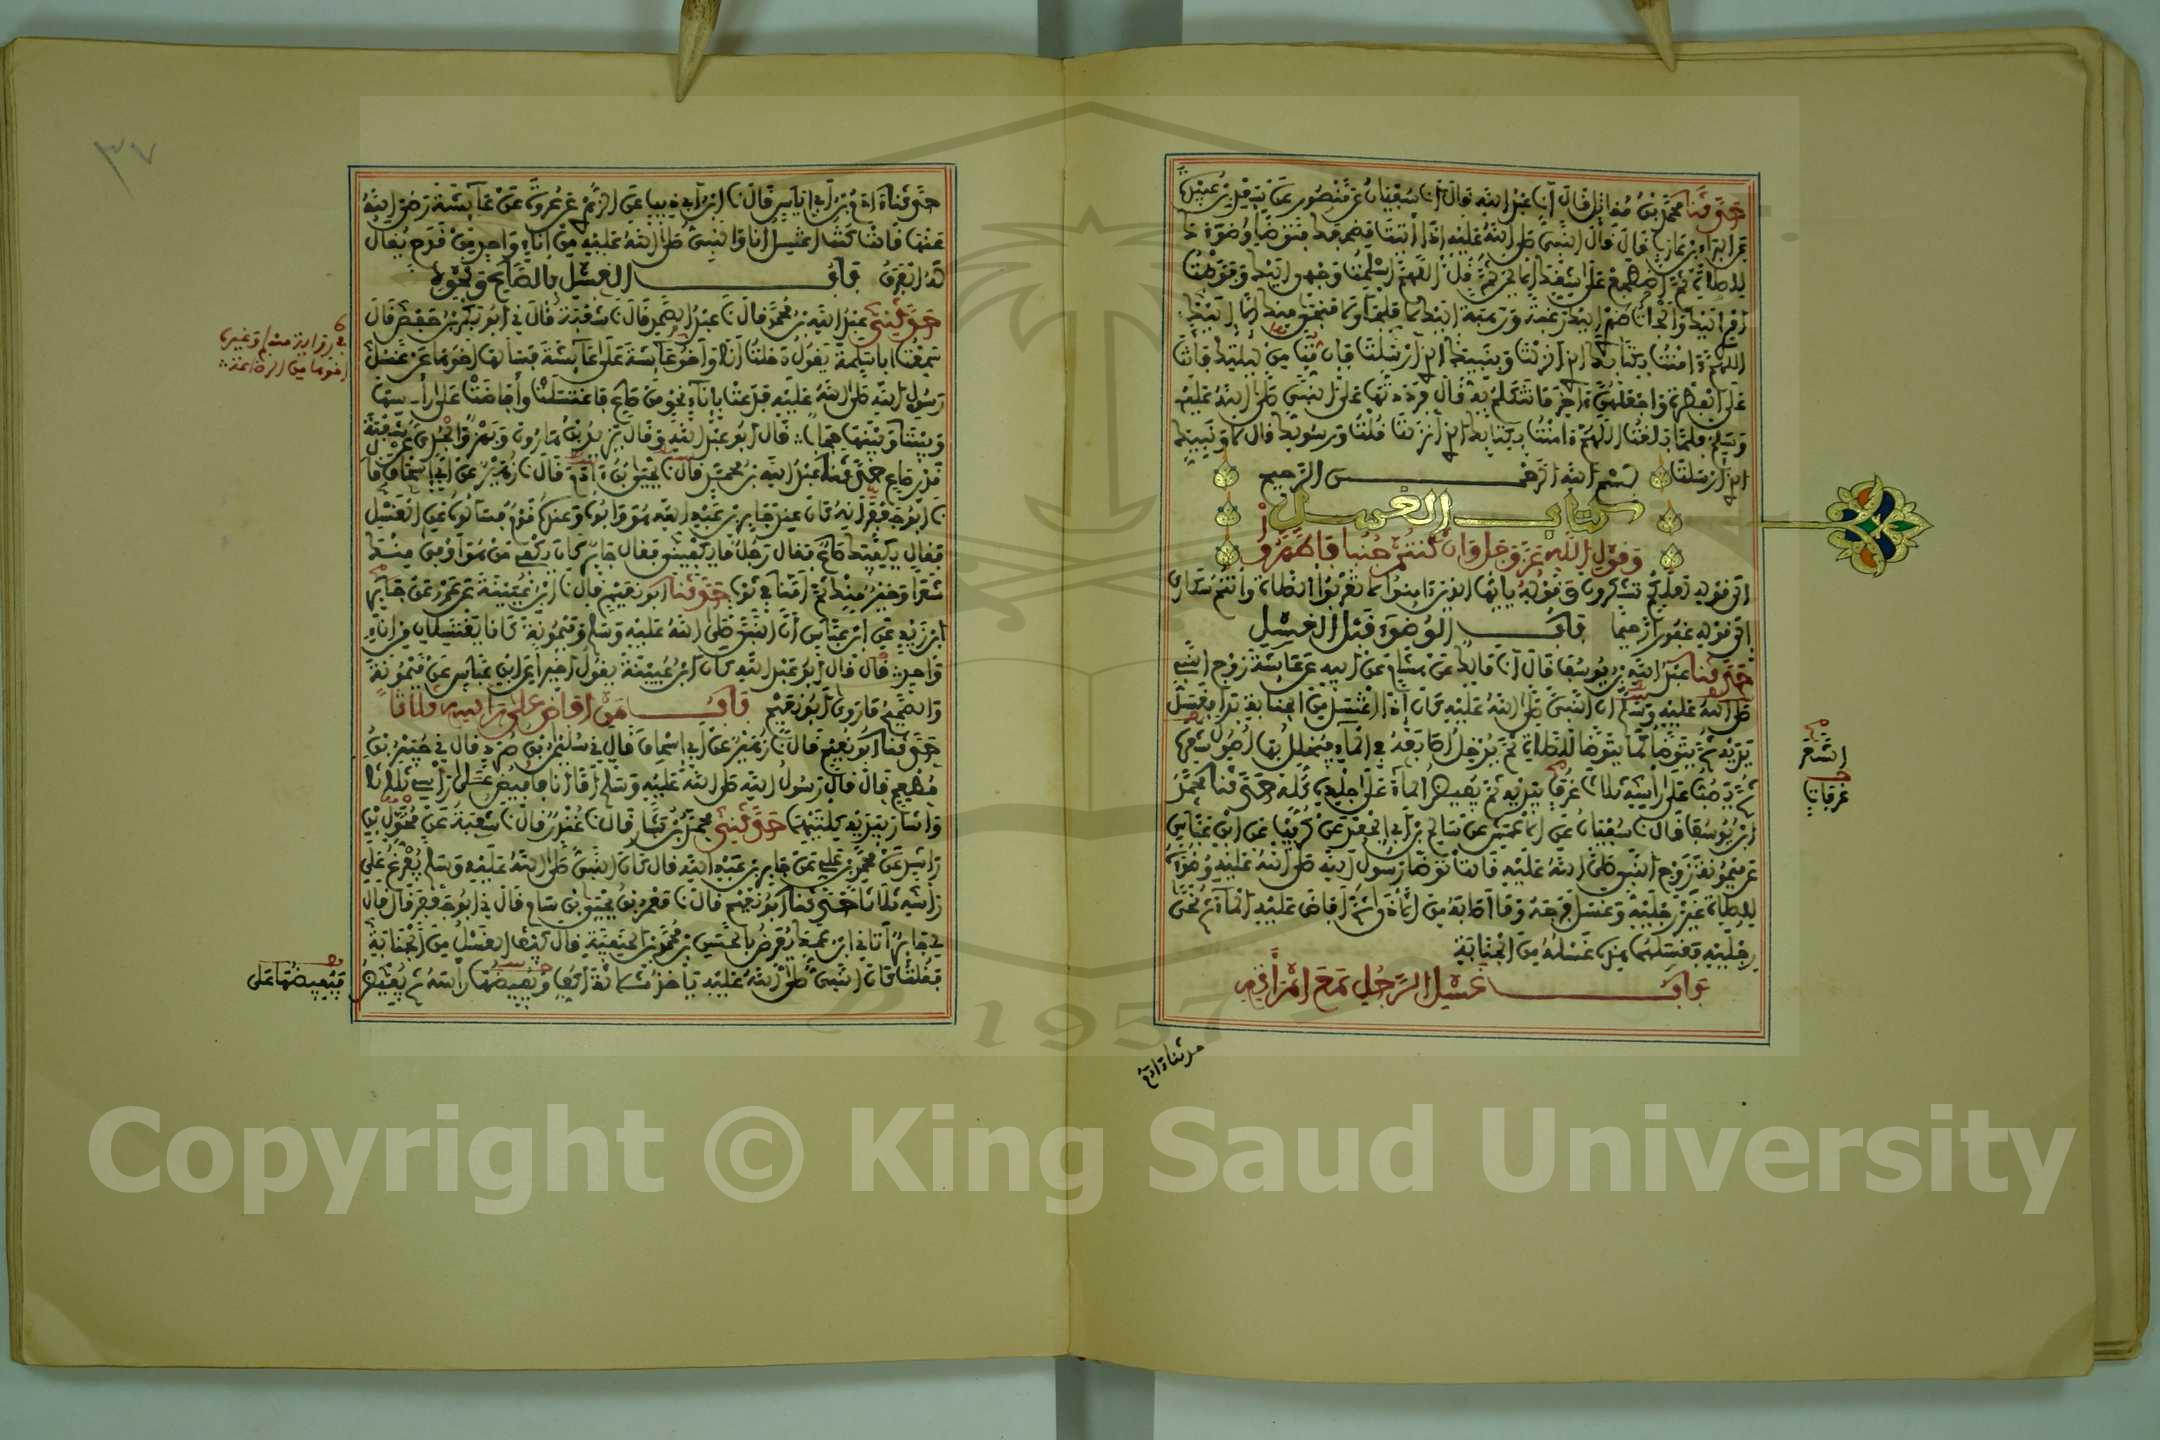 حدثنا محمد بن مقاتل قال انا عبد الله قال انا سفيان عن منصور عن سعد بن عبيدة
عن البراء بن عازب قال قال النبي صلى الله عليه اذا اتيت مضجعك فتوضأ وضوءك
للصلاة ثم اضطجع على شقك الايمن ثم قل اللهم اسلمت وجهي اليك وفوضت
امري اليك والجأت ظهري اليك رغبة ورهبة اليك لا ملجأ ولا منجى منك الا اليك
اللهم ءامنت بكتابك الذي انزلت وبنبيك الذي ارسلت فان مت من ليلتك فانت
على الفطرة واجعلهن ءاخر ما تتكلم به قال فرددتها على النبي صلى الله عليه
وسلم فلما بلغت اللهم ءامنت بكتابك الذي انزلت قلت ورسولك قال لا ونبيك
الذي ارسلت بسم الله الرحمن الرحيم
كتاب الغسل
وقول الله عز وجل وان كنتم جنبا فاطهروا
الى قوله لعلكم تشكرون وقوله يايها الذين ءامنوا لا تقربوا الصلاة وانتم سكارى
الى قوله عفوا رحيما باب الوضوء قبل الغسل
حدثنا عبد الله بن يوسف قال انا مالك عن هشام عن ابيه عن عائشة زوج النبي
صلى الله عليه وسلم ان النبي صلى الله عليه كان اذا اغتسل من الجنابة بدأ فغسل
يديه ثم يتوضأ كما يتوضأ للصلاة ثم يدخل اصابعه في الماء فيخلل بها اصول شعره
ثم يصب على رأسه ثلاث غرف بيديه ثم يفيض الماء على جلده كله حدثنا محمد
ابن يوسف قال نا سفيان عن الاعمش عن سالم بن ابي الجعد عن كريب عن ابن عباس
عن ميمونة زوج النبي صلى الله عليه قالت توضأ رسول الله صلى الله عليه وضوءه
للصلاة غير رجليه وغسل فرجه وما اصابه من الاذى ثم افاض عليه الماء ثم نحى
رجليه فغسلهما هذه غسله من الجنابة
باب غسل الرجل مع امرأته
الشعر
غرفات
حدثنا ءادم
٣٧
حدثنا ءادم بن ابي اياس قال نا ابن ابي ذيب عن الزهري عن عروة عن عائشة رضي الله
عنها قالت كنت اغتسل انا والنبي صلى الله عليه من اناء واحد من قدح يقال
له الفرق باب الغسل بالصاع ونحوه
حدثني عبد الله بن محمد قال نا عبد الصمد قال نا شعبة قال ني ابو بكر بن حفص قال
سمعت ابا سلمة يقول دخلت انا واخو عائشة على عائشة فسألها اخوها عن غسل
رسول الله صلى الله عليه فدعت باناء نحو من صاع فاغتسلت وأفاضت على رأسها
وبيننا وبينها حجاب قال ابو عبد الله وقال يزيد بن هارون وبهز والجدي عن شعبة
قدر صاع حدثنا عبد الله بن محمد قال نا يحيى بن ءادم قال نا زهير عن ابي اسحاق قال
نا ابو جعفر انه كان عند جابر بن عبد الله هو وابوه وعنده قوم فسألوه عن الغسل
فقال يكفيك صاع فقال رجل ما يكفيني فقال جابر كان يكفي من هو اوفى منك
شعرا وخير منك ثم أمنا في ثوب حدثنا ابو نعيم قال نا ابن عيينة عن عمرو عن جابر
ابن زيد عن ابن عباس أن النبي صلى الله عليه وسلم وميمونة كانا يغتسلان من اناء
واحد قال قال ابو عبد الله كان ابن عيينة يقول اخيرا عن ابن عباس عن ميمونة
والصحيح ما روى ابو نعيم باب من افاض على رأسه ثلاثا
حدثنا ابو نعيم قال نا زهير عن ابي اسحاق قال ني سليمان بن صرد قال ني جبير بن
مطعم قال قال رسول الله صلى الله عليه وسلم أما انا فأفيض على رأسي ثلاثا
وأشار بيديه كلتيهما حدثني محمد بن بشار قال نا غندر قال نا شعبة عن مخول بن
راشد عن محمد بن علي عن جابر بن عبد الله قال كان النبي صلى الله عليه وسلم يفرغ على
رأسه ثلاثا حدثنا ابو نعيم قال نا معمر بن يحيى بن سام قال ني ابو جعفر قال قال
لي جابر أتاني ابن عمك يعرض بالحسن بن محمد بن الحنفية قال كيف الغسل من الجنابة
فقلت كان النبي صلى الله عليه يأخذ ثلاثة اكف ويفيضها رأسه ثم يفيض
في رواية مسلم وغيره
اخوها من الرضاعة
فيفيضها على
Copyright © King Saud University
1957